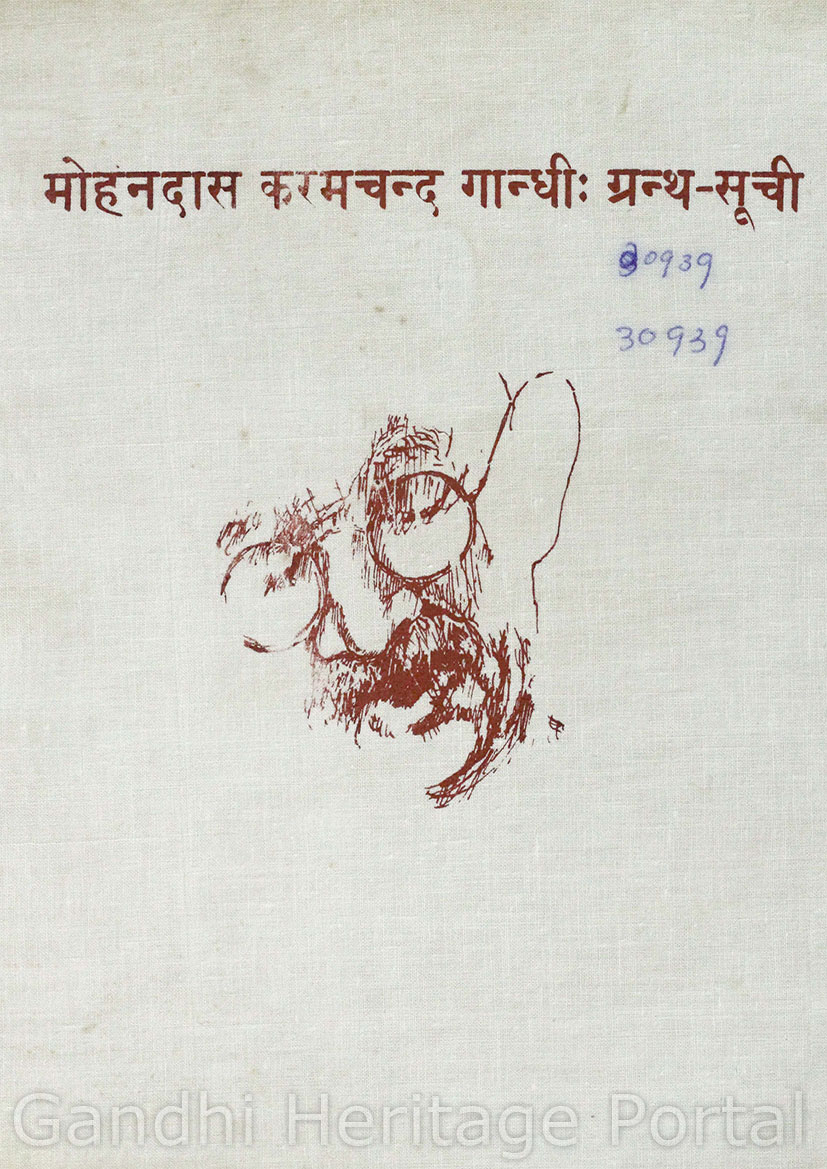 मोहनदास करमचन्द गान्धीः ग्रन्थ-सूची
30939
30939
Gandhi Heritage Portal